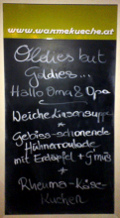 www.warmekueche.at
Oldies but
Goldies...
Hallo Oma & Opa
Weiche Linsensuppe
*
Gebiss-schonende
Hühnerroulade
mit Erdäpfel + Gmüs
*
Rheuma-Käse-
Kuchen